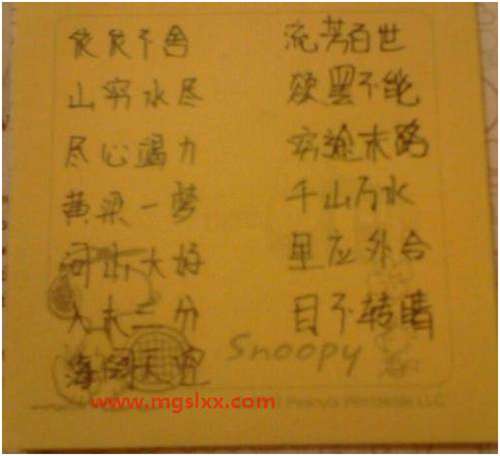 不舍 流芳百世
山穷水尽 欲罢不能
尽心竭力 穷途末路
黄粱一梦 千山万水
河山大好 里应外合
入木三分 目不转睛
海阔天空 Snoopy
www.mgslxx.com
Worldwide LLC